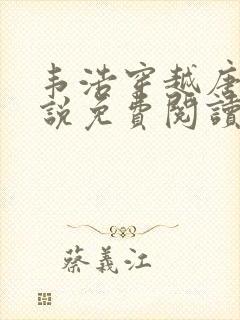 韦浩穿越唐
説免費閱讀
蔡義江